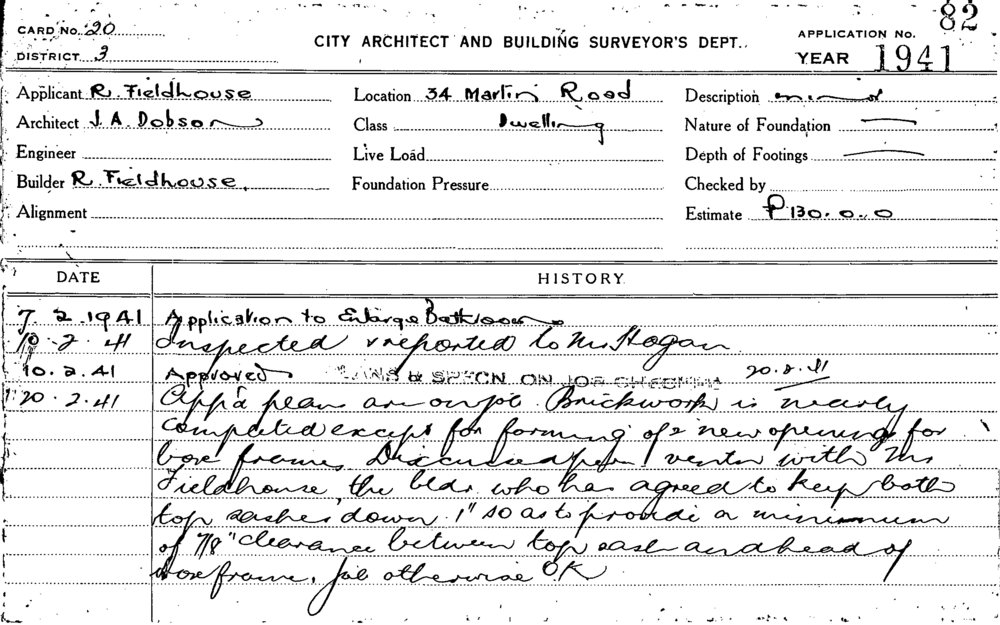 82
CARD No. 20
DISTRICT 3
CITY ARCHITECT AND BUILDING SURVEYOR'S DEPT.
APPLICATION No.
YEAR 1941
Applicant R. Fieldhouse Location 34 Martin Road Description
Architect J. A. Dobson Class Dwelling Nature of Foundation —
Engineer Live Load Depth of Footings —
Builder R. Fieldhouse. Foundation Pressure Checked by
Alignment Estimate £130.0.0
DATE HISTORY
7.2.1941 Application to Enlarge Bathroom
10.2.41 Inspected & reported to Mr Hogan
10.2.41 Approved PLANS & SPECN ON JOB CHECKED 20.2.41
20.2.41 App'd plans are on job. Brickwork is nearly
completed except for forming of 2 new openings for
box frames. Discussed perm. vents with Mr
Fieldhouse, the bldr. who has agreed to keep both
top sashes down 1" so as to provide a minimum
of 7/8" clearance between top sash and head of
box frame. Job otherwise O.K